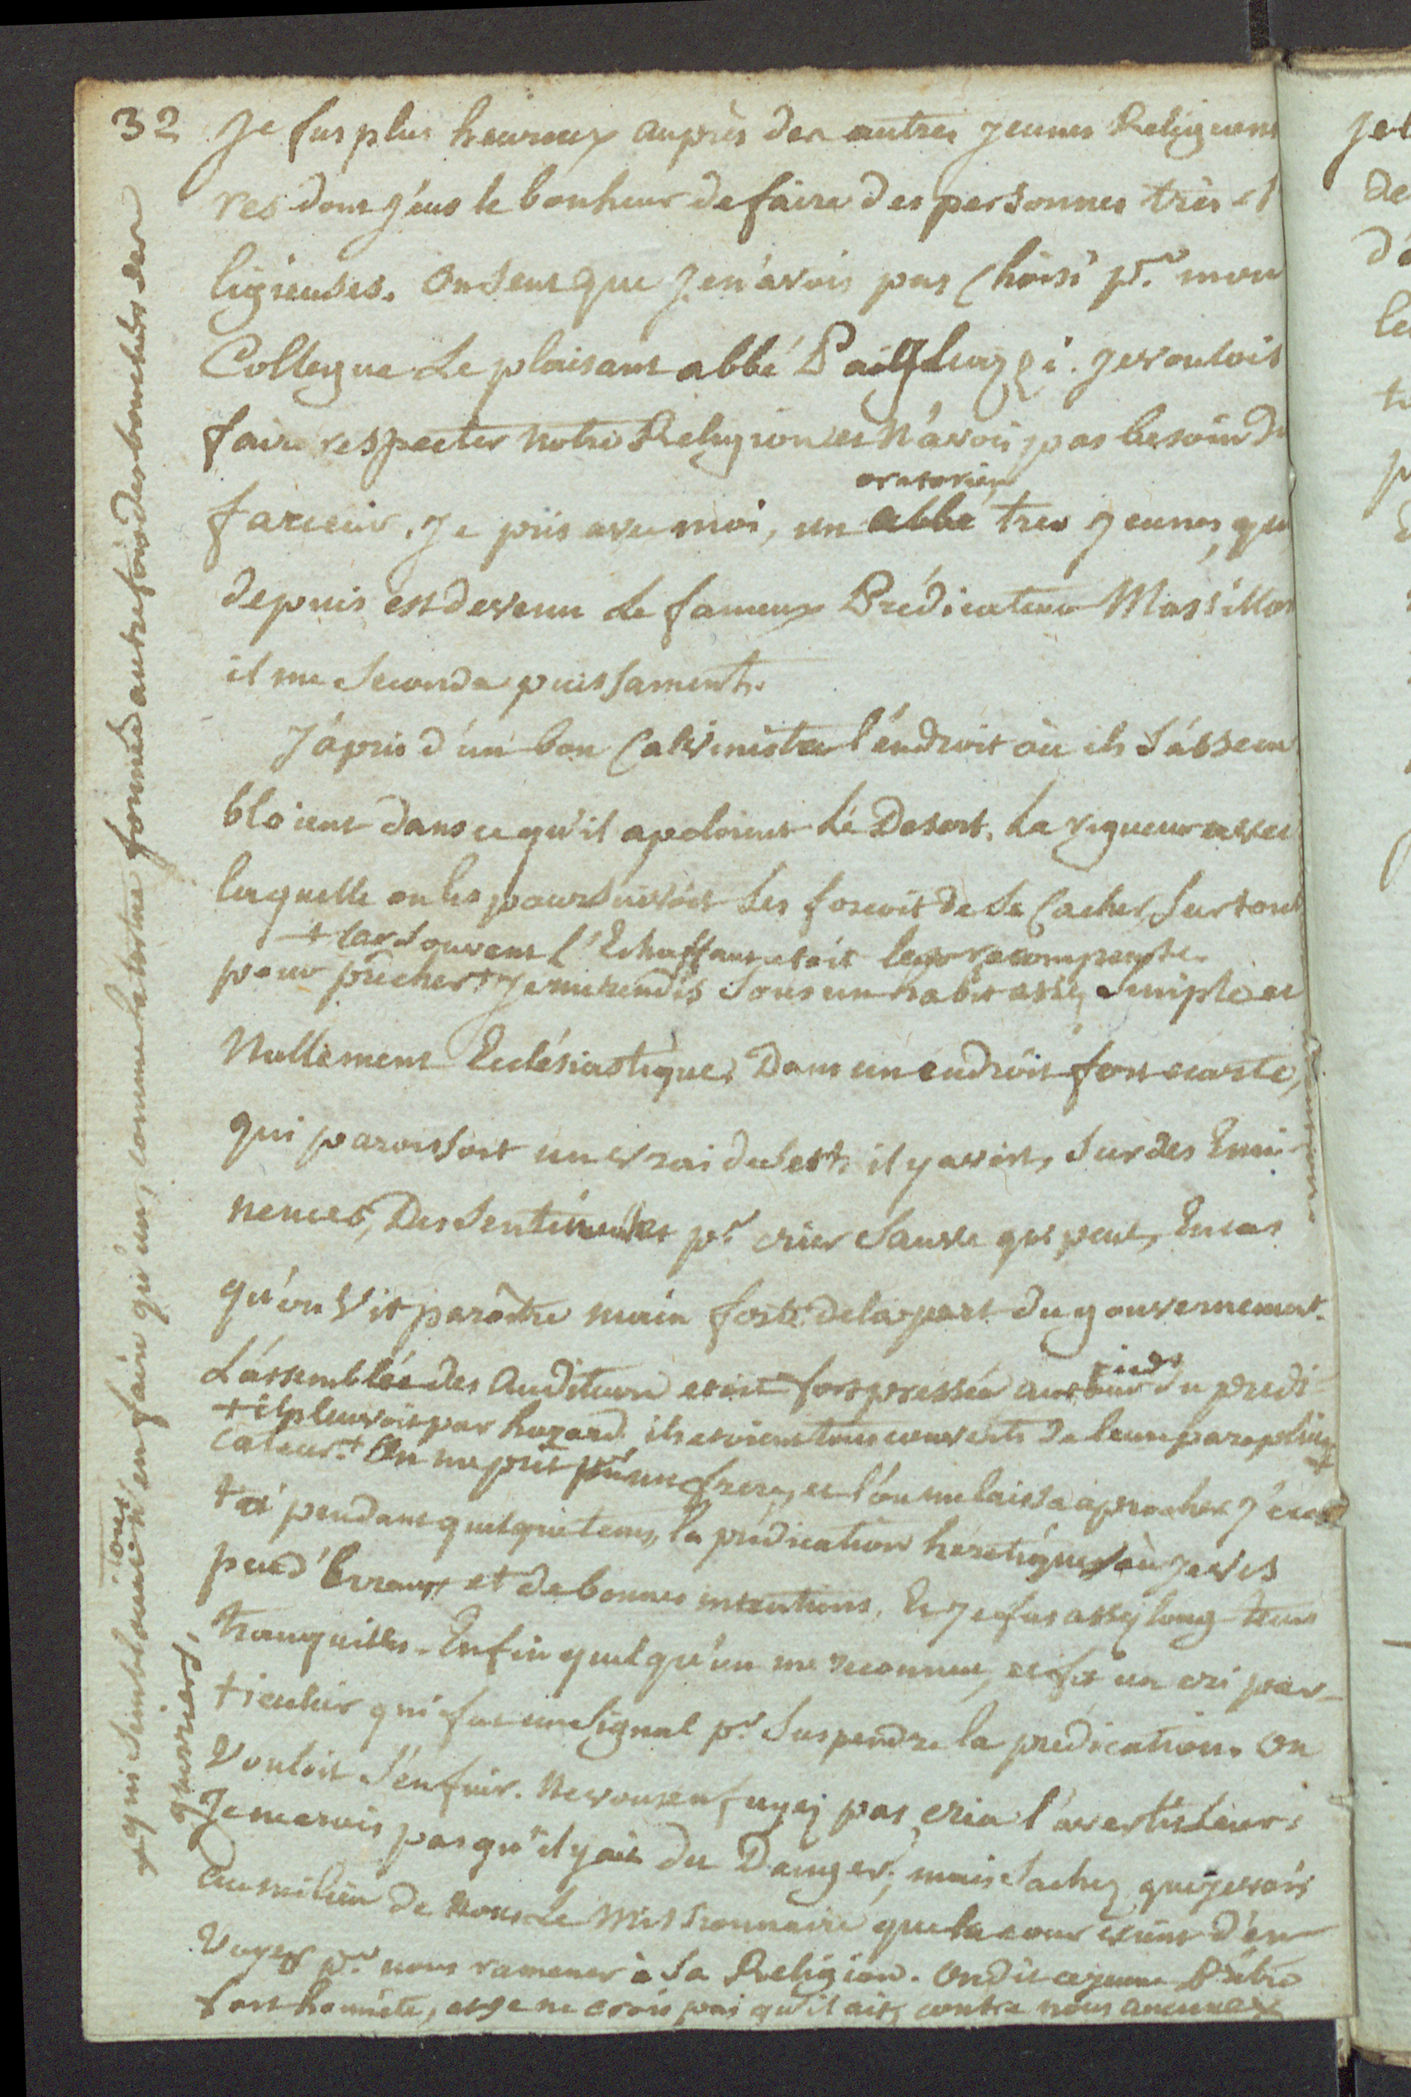 32
Je fus plus heureux auprès des autres jeunes Religionai
res dont j'eus le bonheur de faire des personnes très re
ligieuses. On sent que je n'avois pas choisi pr. mon
Collegue Le plaisant abbé. Je voulois
faire respecter notre Religion et n'avois pas besoin de
oratorien
farceur. Je pris avec moi, un abbé très jeune, qui
depuis est devenu Le fameux Prédicateur Massillon
il me seconda puissament.
J'apris d'un bon Calviniste l'éndroit où ils s'assem
bloient dans ce qu'il apeloient Le Desert. La rigueur avec
laquelle on les poursuivoit Les forçoit de se Cacher, surtout
+ Car souvent l'Echaffaut etoit leur recompense.
pour prêcher + Je me rendis sous un habit assez simple et
Nullement Ecclésiastique, Dans un endroit fort ecarté,
qui paroissoit un vrai desert. il y avoit, sur des Emi-
nences, Des sentinelles pr. crier sauve qui peut, En cas
qu'on Vit parôitre main forte de la part du gouvernement.
L'assemblée des Auditeurs etoit fort pressée aux pieds du predi
+ il pleuvoit par hazard. ils etoient tous couverts de leurs parapluies +
cateur + On me prit pour un frere, et l'on me laissa aprocher J'écou
tai pendant quelque tems, la prédication heretique, où je vis
peu d'Erreurs et de bonnes intentions, Et je fus assez long-tems
tranquille. Enfin quelqu'un me reconnut, et fit un cri par-
ticulier qui fut un signal pr. suspendre la prédication. On
Vouloit s'enfuir. Ne vous enfuyez pas, cria l'avertisseur;
Je ne crois pas qu'il y ait du Danger; mais sachez que je vois
Au milieu de nous Le Missionnaire que la cour vient d'en
voyer pr. nous ramener à sa Religion. On dit ce jeune Prêtre
fort honnête, et je ne crois pas qu'il ait, contre nous aucune
+ qui sembloient tous n'en faire qu'un, comme la tortue formée autrefois des boucliers des
guerriers,